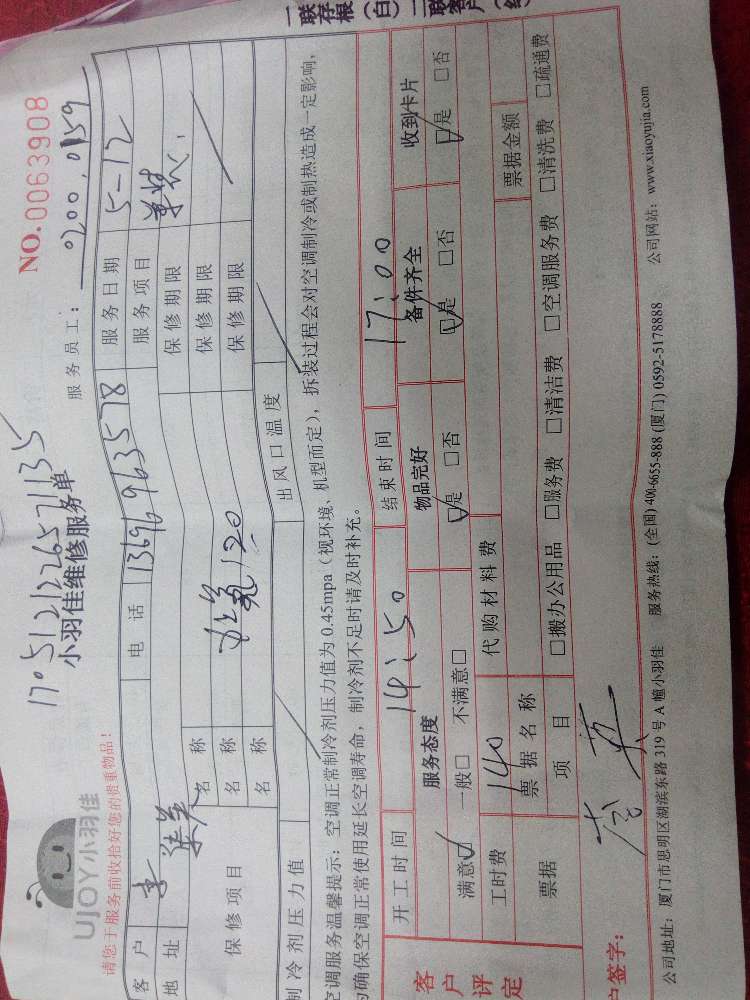 一联存根(白)二联客户(红
NO.0063908
170512122657l135
小羽佳维修服务单
UJOY小羽佳
服务员工: 0200.0159
请您于服务前收拾好您的贵重物品!
客户 李 电话 13696963578 服务日期 5-12
地址 服务项目
保修项目 名称 保修期限
名称 120 保修期限
名称 保修期限
制冷剂压力值 出风口温度
空调服务温馨提示:空调正常制冷剂压力值为0.45mpa(视环境、机型而定),拆装过程会对空调制冷或制热造成一定影响,
为确保空调正常使用延长空调寿命,制冷剂不足时请及时补充。
客户评定 开工时间 14:50 结束时间 17:00
服务态度 物品完好 备件齐全 收到卡片
满意☑ 一般□ 不满意□ ☑是 □否 ☑是 □否 ☑是 □否
工时费 140 代购材料费
票据 票据名称 票据金额
项目 □搬办公用品 □服务费 □清洁费 □空调服务费 □清洗费 □疏通费
户签字:
公司地址:厦门市思明区湖滨东路319号A幢小羽佳 服务热线:(全国)400-6655-888(厦门)0592-5178888 公司网站:www.xiaoyujia.com